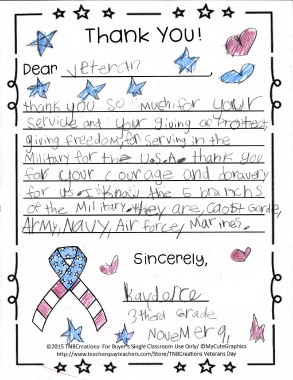 Thank You!
Dear veteran
thank you so much for your
service and your giving of Protest,
giving freedom, for serving in the
Military for the U.S.A. thank you
for your courage and bravery
for us. I know the 5 branchs
of the Military. they are, Caost Garde,
Army, Navy, Air force, Marines.
Sincerely,
3third Grade
NOVEM 9,
©2015 TNBCreations- For Buyer's Single Classroom Use Only/ ©MyCuteGraphics
http://www.teacherspayteachers.com/Store/TNBCreations Veterans Day